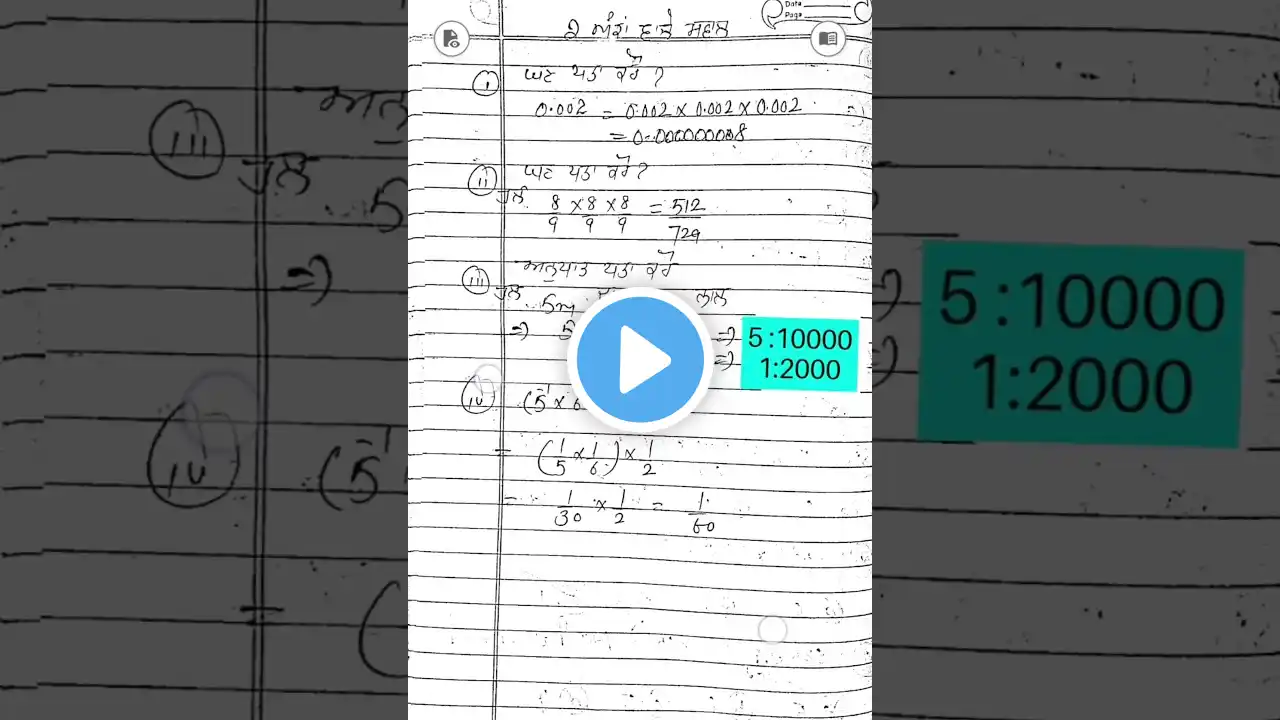 Date
Page
2 ਅੰਕਾਂ ਵਾਲੇ ਸਵਾਲ
(i) ਘਣ ਪਤਾ ਕਰੋ ?
0.002 = 0.002 × 0.002 × 0.002
= 0.000000008
(ii) ਘਣ ਪਤਾ ਕਰੋ ?
ਹੱਲ 8/9 × 8/9 × 8/9 = 512/729
(iii) ਅਨੁਪਾਤ ਪਤਾ ਕਰੋ
ਹੱਲ 5m ਨਾਲ
⇒ 5 ⇒ 5:10000
⇒ 1:2000
(iv) (5⁻¹ × 6
= (1/5 × 1/6) × 1/2
= 1/30 × 1/2 = 1/60
(iii) ਹੱਲ
5
⇒
(iv) (5⁻¹
= (
5:10000
1:2000